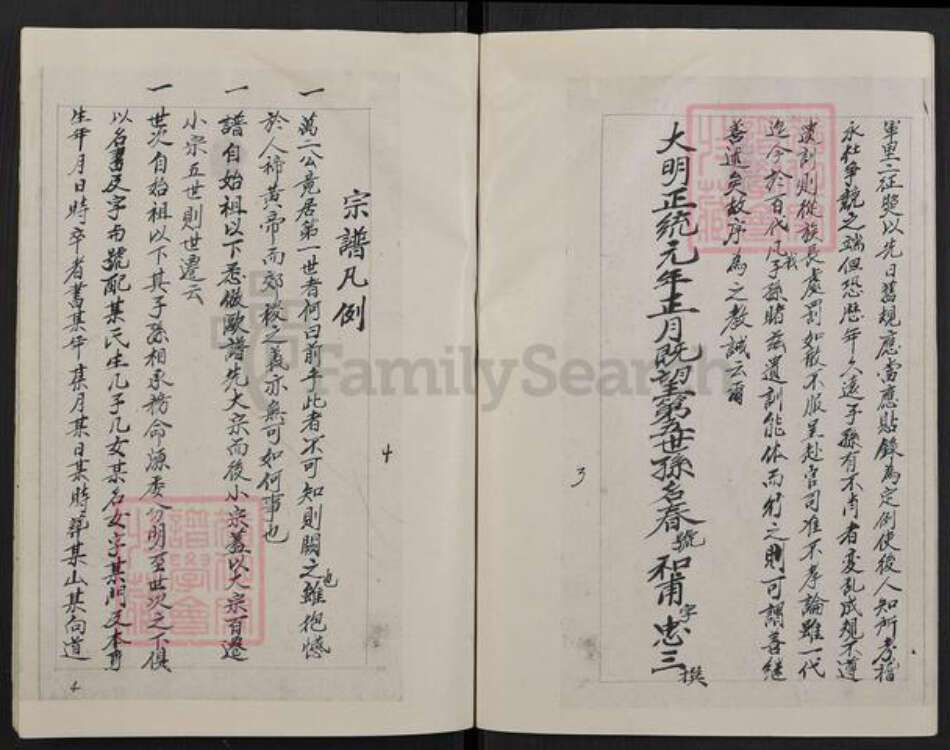 軍里二征獎以先日舊規應當應貼錄為定例使後人知所考指
永杜爭競之端但恐歷年人遠子孫有不肖者变乱成規不遵
遺訓則從族長處罰如敢不服呈赴官司准不孝論雖一代
迄今於百代凡我子孫睹茲遺訓能体而行之則可謂善繼
善述矣故序為之教誡云爾
大明正統元年正月既望第五世孫名春號和甫字忠三撰
3
宗譜凡例
一 萬二公竟居第一世者何曰前乎此者不可知則闕之也雖抱憾
於人禘黃帝而郊稷之義亦無可如何事也
一 譜自始祖以下悉倣歐譜先大宗而後小宗蓋以大宗百遷
小宗五世則世遷云
一 世次自始祖以下其子孫相承務命源委分明至世次之下俱
以名書及字勿號配某氏生几子几女某名女字某門及本身
生年月日時卒者書某年某月某日某時葬某山某向道
4
4
FamilySearch